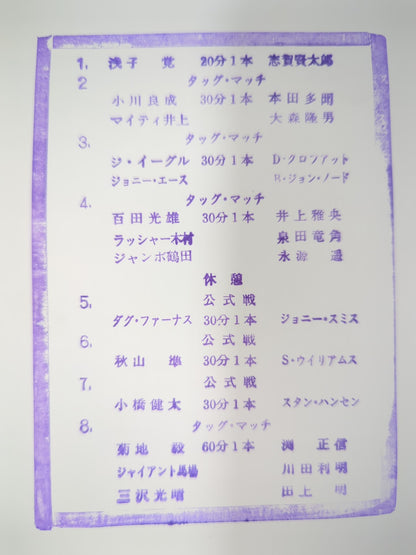 1. 浅子 覚 20分1本 志賀賢太郎
2 タッグ・マッチ
小川良成 30分1本 本田多聞
マイティ井上 大森隆男
3. タッグ・マッチ
ジ・イーグル 30分1本 D・クロファット
ジョニー・エース B・ジョン・ノード
4. タッグ・マッチ
百田光雄 30分1本 井上雅央
ラッシャー木村 泉田竜角
ジャンボ鶴田 永源 遥
休憩
5. 公式戦
ダグ・ファーナス 30分1本 ジョニー・スミス
6. 公式戦
秋山 準 30分1本 S・ウイリアムス
7. 公式戦
小橋健太 30分1本 スタン・ハンセン
8. タッグ・マッチ
菊地 毅 60分1本 渕 正信
ジャイアント馬場 川田利明
三沢光晴 田上 明